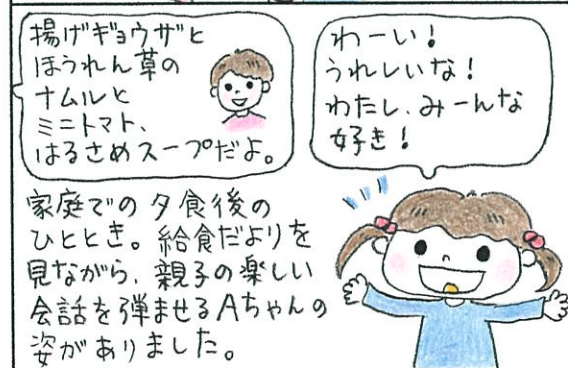 揚げギョウザと
ほうれん草の
ナムルと
ミニトマト、
はるさめスープだよ。
わーい！
うれしいな！
わたし、みーんな
好き！
家庭での夕食後の
ひととき。給食だよりを
見ながら、親子の楽しい
会話を弾ませるAちゃんの
姿がありました。